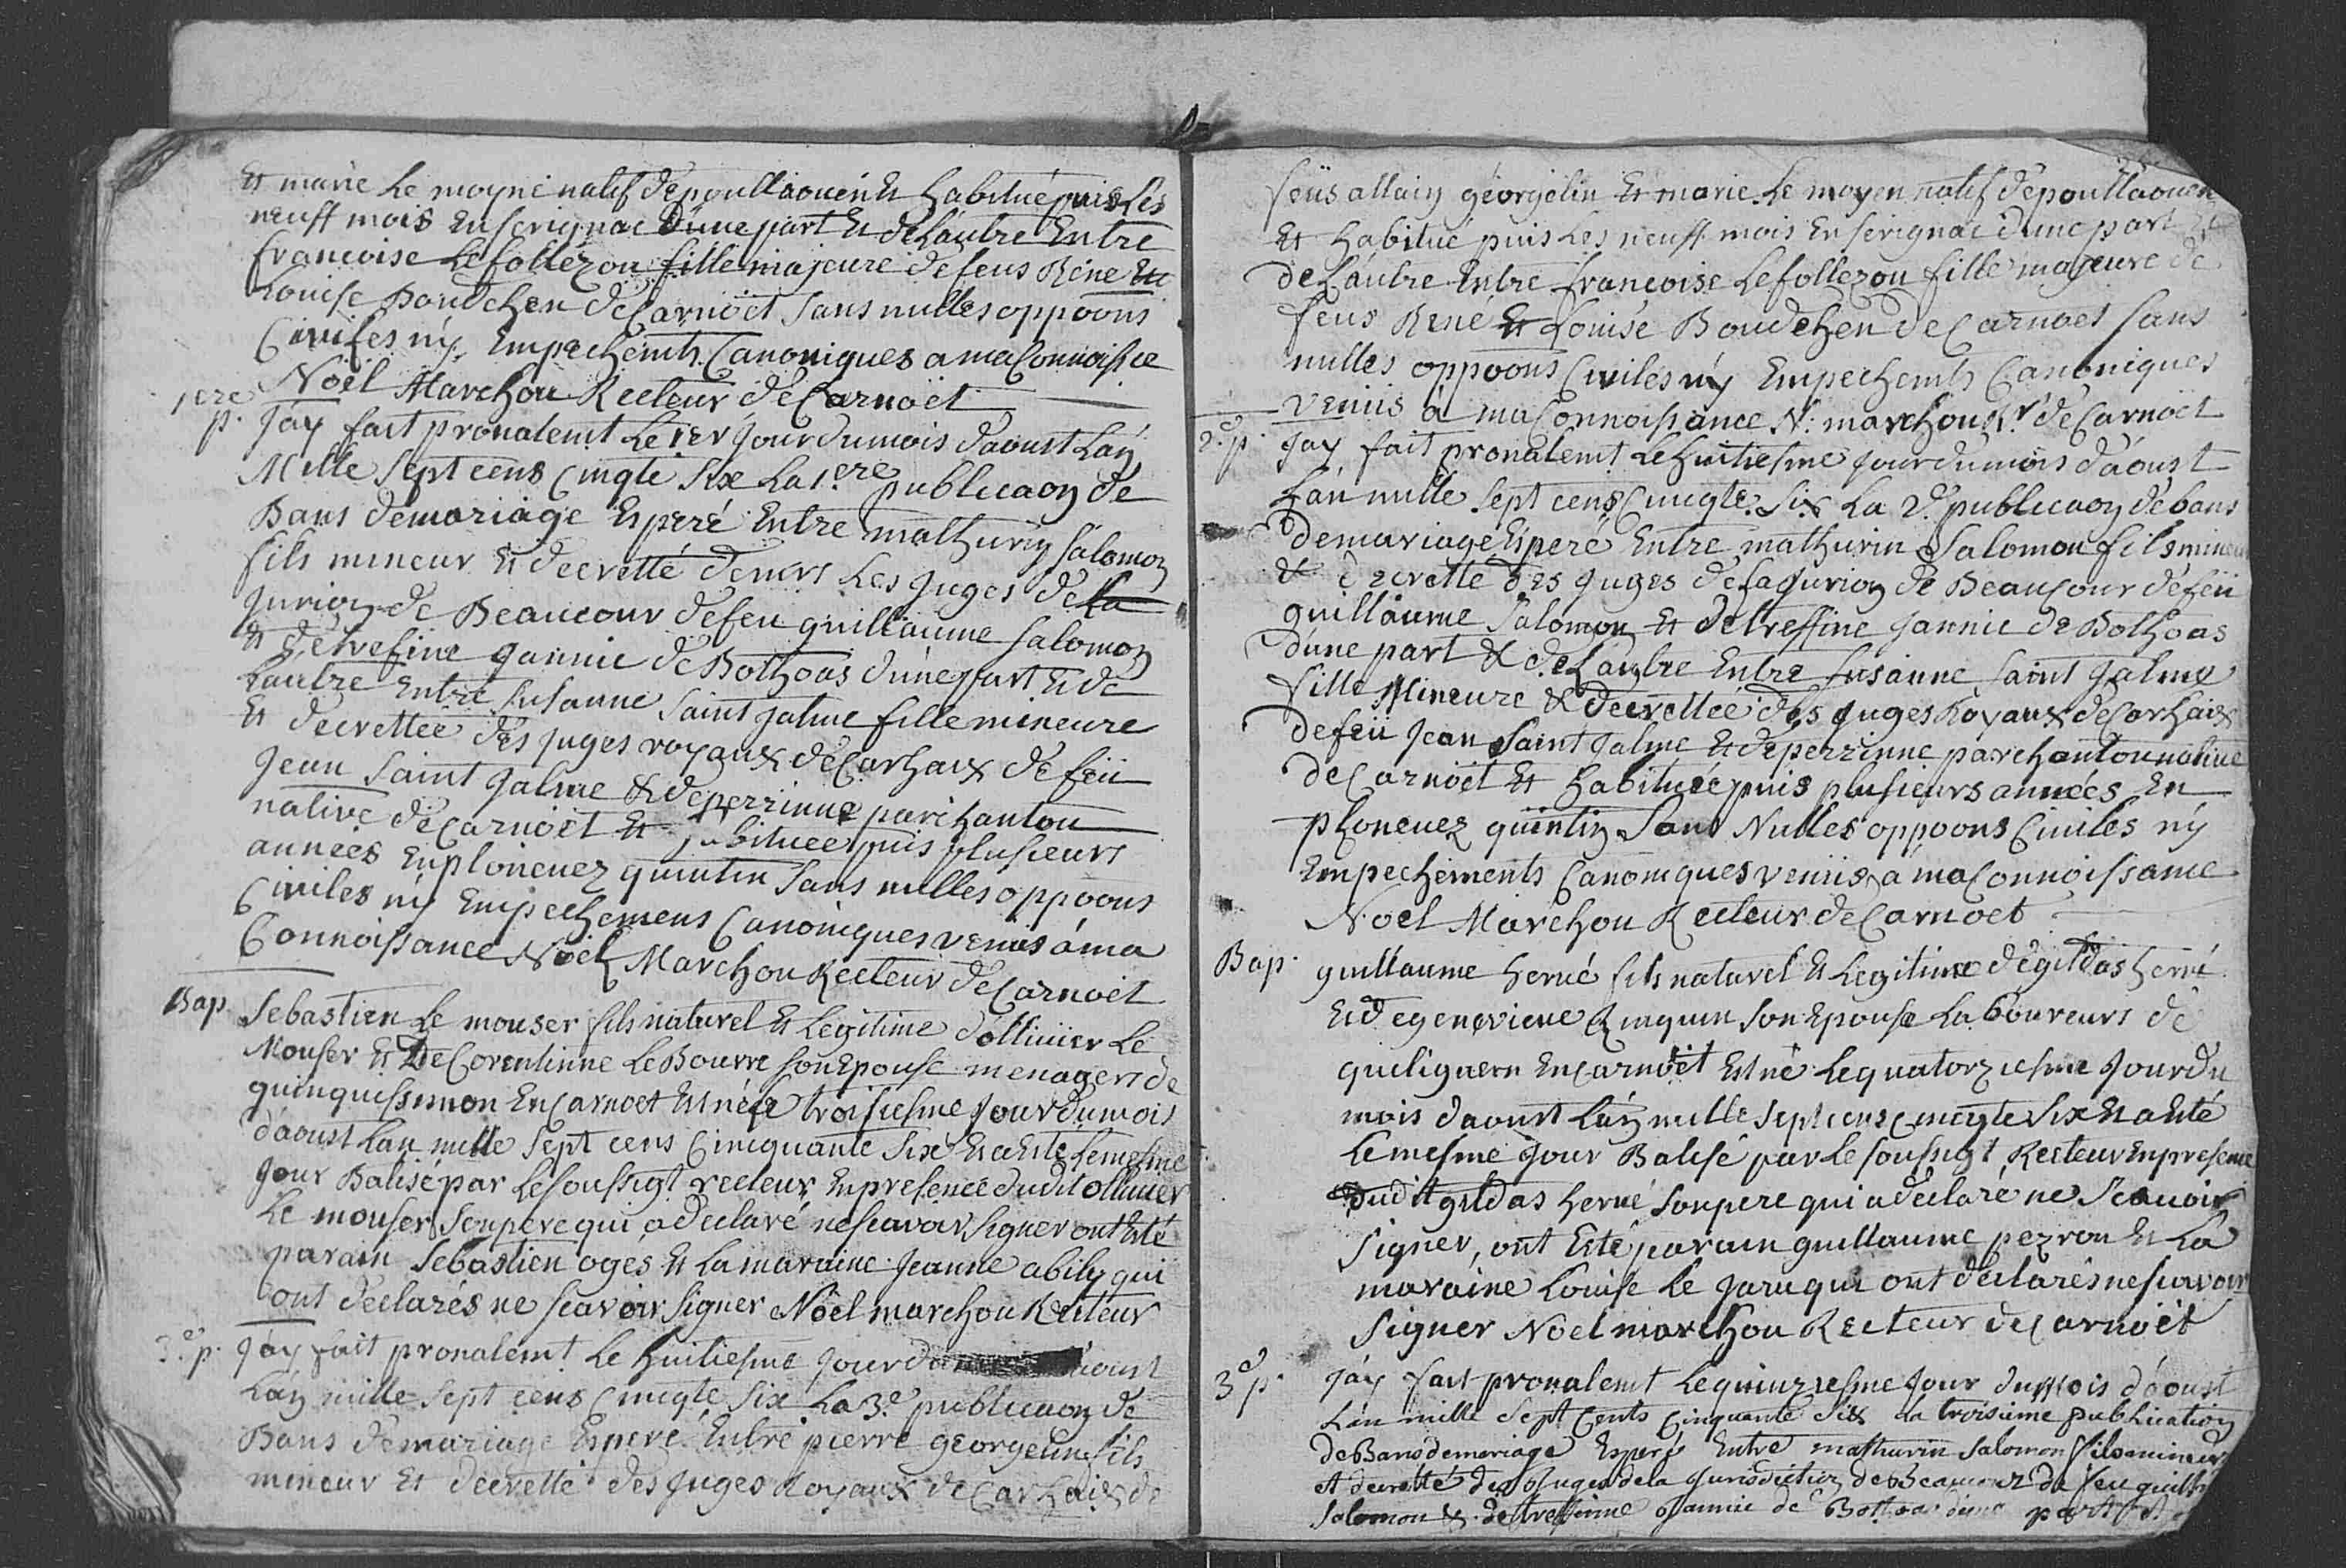 Et marie Le moyne natif de poullaouen Et habitué puis Les
neuff mois En scrignac d'une part Et de Láutre Entre
francoise Lefollezou fille majeure de feus Réne Et
Louise Boudehen de Carnoët sans nulles oppoons
Civiles ny Empechemts Canoniques a ma Connoissce
Noël Marchou Recteur de Carnoët
1ere p. Jay fait pronalemt Le 1er Jour du mois d'aoust Lan
Mille sept cens cinqte six La 1.ere publicaon de
Bans de mariage Esperé Entre mathurin Salomon
fils mineur Et decretté devers Les Juges de La
Jurion de Beaucour de feu guillaume Salomon
Et de trefine Jannic de Bothoas d'une part Et de
Láutre Entre Susanne Saint Jalme fille mineure
Et decrettee des Juges royaux de Carhaix de feü
Jean Saint Jalme & de perrinne parchantou
native de Carnoët Et habituee puis plusieurs
années En plonevez quintin Sans nulles oppoons
Civiles ny Empechemens Canoniques venus á ma
Connoissance Noël Marchou Recteur de Carnoët
Bap. Sebastien Le mouser fils naturel Et Legitime d'ollivier Le
Mouser Et De Corentinne Le Bourre son Epouse menagers de
quinquissimon En Carnoet Est né Le troisiesme Jour du mois
d'áoust Lan mille sept cens cinquante six Et a Esté Le mesme
Jour Batisé par Le soussigt recteur En presence dudit ollivier
Le mouser son pere qui a declaré ne scavoir signer ont Esté
parain Sebastien oges Et La maraine Jeanne abily qui
ont declarés ne scavoir signer Noël marchou Recteur
3.e p. Jáy fait pronalemt Le huitiesme Jour du aoust
Lan mille sept cens cinqte six La 3.e publicaon de
Bans de mariage Esperé Entre pierre georgelin fils
mineur Et decretté des Juges Royaux de Carhaix de
feüs allain géorgelin Et marie Le moyen natif de poullaouen
Et habitué puis Les neuff mois En scrignac d'une part Et
de Láutre Entre francoise Lefollezou fille majeure de
feus René Et Louise Boudehen de Carnoet sans
nulles oppoons Civiles ny Empechemts Canoniques
venüs á ma Connoissance N: marchou Rr de Carnoët
2.e p. Jay fait pronalemt Le huitiesme Jour du mois d'áoust
Lan mille sept cens Cinqte six La 2.e publicaon de bans
de mariage Esperé Entre mathurin Salomon fils mineu
& decretté des Juges de La Jurion de Beaucour de feü
guillaume Salomon Et de treffine Jannic de Bothoas
d'une part & de Laútre Entre Susanne Saint Jalme
fille Mineure & decrettée des Juges Royaux de Carhaix
de feü Jean Saint Jalme Et de perrinne parchantou native
de Carnoët Et habituée puis plusieurs années En
plonevez quintin Sans Nulles oppoons Civiles ny
Empechements Canoniques venüs á ma Connoissance
Noel Marchou Recteur de Carnoet
Bap. guillaume hervé fils naturel Et Legitime de gildas hervé
Et de genevieve Quinquin son Epouse Laboureurs de
queliguern En Carnoët Est né Le quatorziesme Jour du
mois daoust Lan mille sept cens cinqte six Et a Esté
Le mesme Jour Batisé par Le soussigt Recteur En presence
dudit gildas hervé son pere qui a declaré ne Scavoir
signer, ont Esté parain guillaume pezron Et La
maraine Louise Le Jaru qui ont declarés ne scavoir
signer Noël marchou Recteur de Carnoët
3.e p. Jáy fait pronalemt Le quinziesme Jour du Mois d'áoust
Lan mille sept Cents Cinquante Six La troisieme publication
de Bans de mariage Esperé Entre mathurin Salomon fils mineur
et decretté des Juges de la Jurisdiction de Beaucour de feu guill
Salomon & de treffinne Jannic de Bothoas d'une part Et